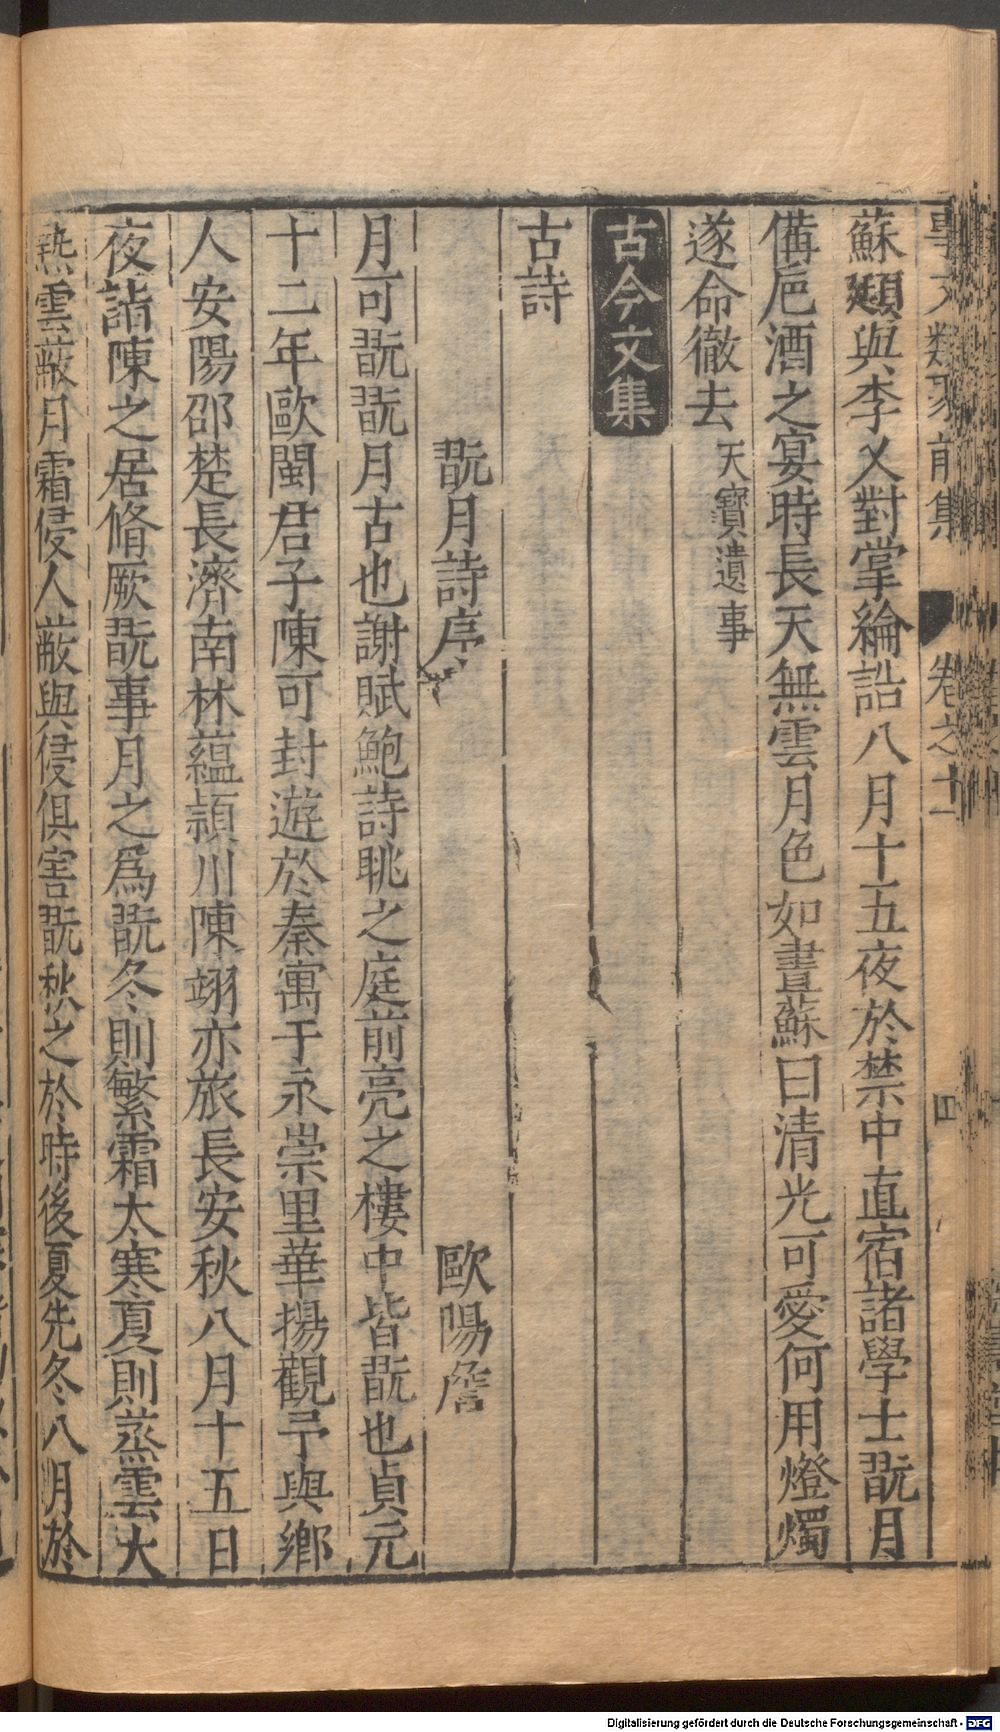 事文類聚前集 卷之十一 四
蘇頲與李乂對掌綸誥八月十五夜於禁中直宿諸學士翫月
備巵酒之宴時長天無雲月色如晝蘇曰清光可愛何用燈燭
遂命徹去天寶遺事
古今文集
古詩
翫月詩序 歐陽詹
月可翫翫月古也謝賦鮑詩眺之庭前亮之樓中皆翫也貞元
十二年歐閩君子陳可封遊於秦寓于永崇里華揚觀予與鄉
人安陽邵楚長濟南林蘊頴川陳翊亦旅長安秋八月十五日
夜詣陳之居脩厥翫事月之爲翫冬則繁霜太寒夏則蒸雲大
熱雲蔽月霜侵人蔽與侵俱害翫秋之於時後夏先冬八月於
Digitalisierung gefördert durch die Deutsche Forschungsgemeinschaft - DFG